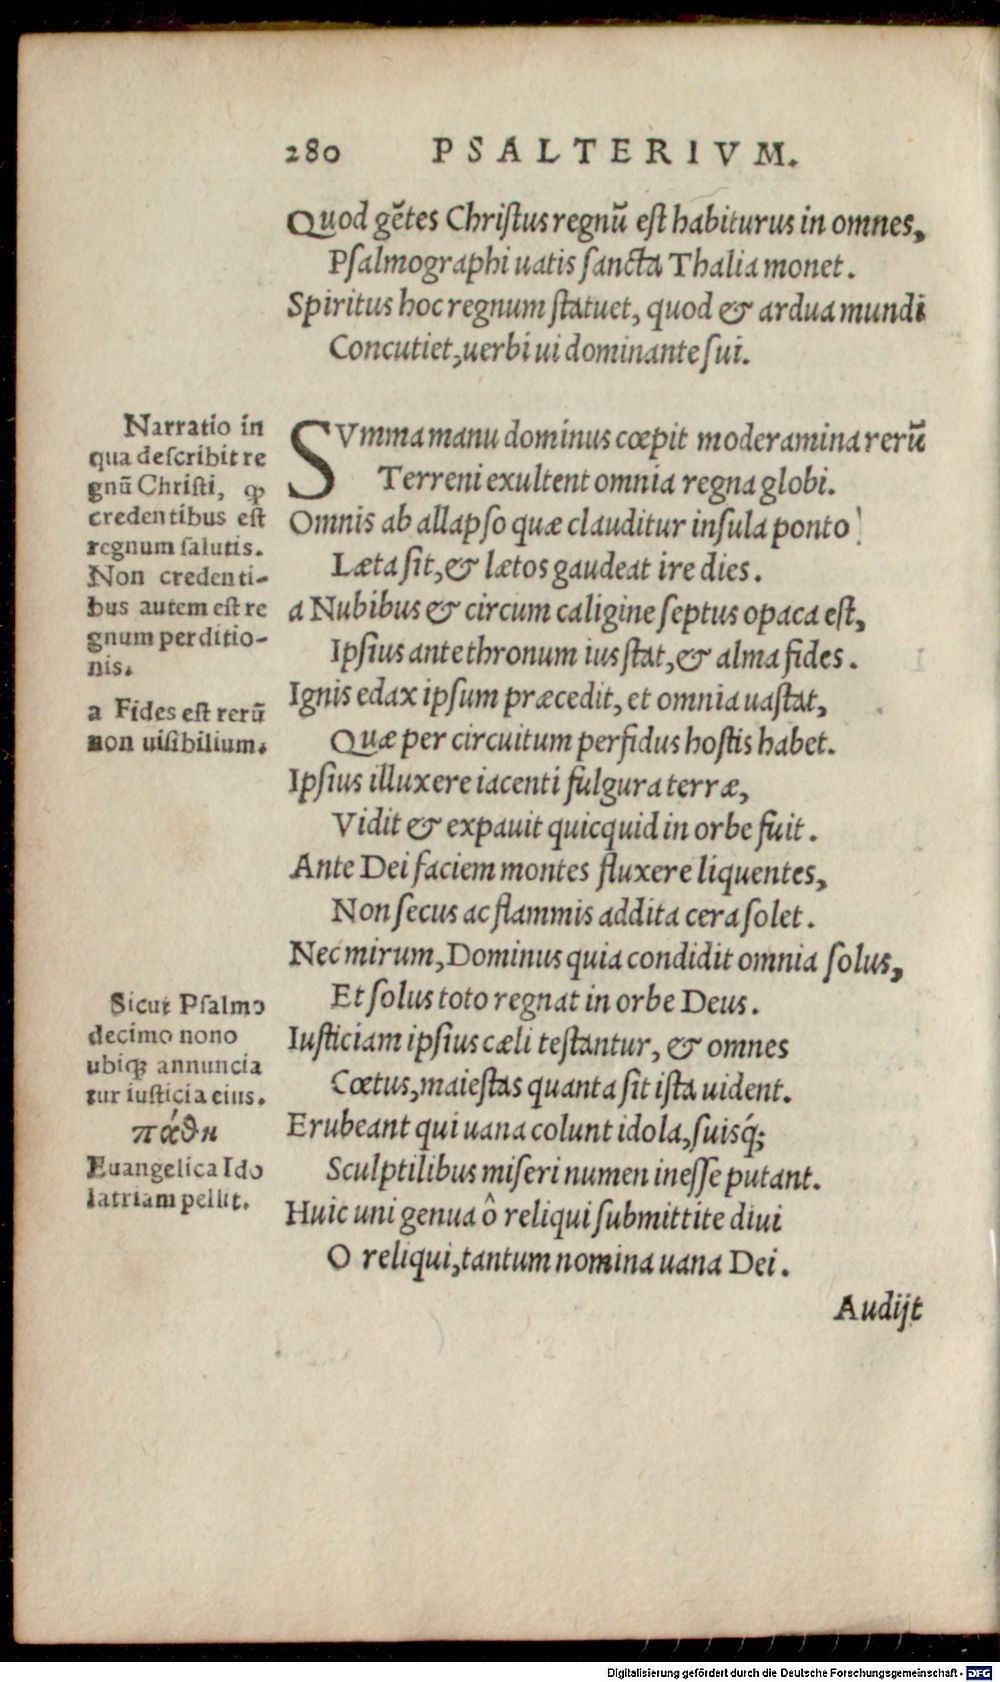 280 PSALTERIVM.
Quod gẽtes Chriſtus regnũ eſt habiturus in omnes,
Pſalmographi uatis ſancta Thalia monet.
Spiritus hoc regnum ſtatuet, quod & ardua mundi
Concutiet, uerbi ui dominante ſui.
Narratio in
qua deſcribit re
gnũ Chriſti, ꝙ
credentibus eſt
regnum ſalutis.
Non credenti-
bus autem eſt re
gnum perditio-
nis.
a Fides eſt rerũ
non uiſibilium.
SVmma manu dominus cœpit moderamina rerũ
Terreni exultent omnia regna globi.
Omnis ab allapſo quæ clauditur inſula ponto
Læta ſit, & lætos gaudeat ire dies.
a Nubibus & circum caligine ſeptus opaca eſt,
Ipſius ante thronum ius ſtat, & alma fides.
Ignis edax ipſum præcedit, et omnia uaſtat,
Quæ per circuitum perfidus hoſtis habet.
Ipſius illuxere iacenti fulgura terræ,
Vidit & expauit quicquid in orbe fuit.
Ante Dei faciem montes fluxere liquentes,
Non ſecus ac flammis addita cera ſolet.
Nec mirum, Dominus quia condidit omnia ſolus,
Et ſolus toto regnat in orbe Deus.
Sicut Pſalmo
decimo nono
ubiqꝫ annuncia
tur iuſticia eius.
πάθη
Euangelica Ido
latriam pellit.
Iuſticiam ipſius cæli teſtantur, & omnes
Cœtus, maieſtas quanta ſit iſta uident.
Erubeant qui uana colunt idola, ſuisq́;
Sculptilibus miſeri numen ineſſe putant.
Huic uni genua ô reliqui ſubmittite diui
O reliqui, tantum nomina uana Dei.
Audijt
Digitalisierung gefördert durch die Deutsche Forschungsgemeinschaft - DFG